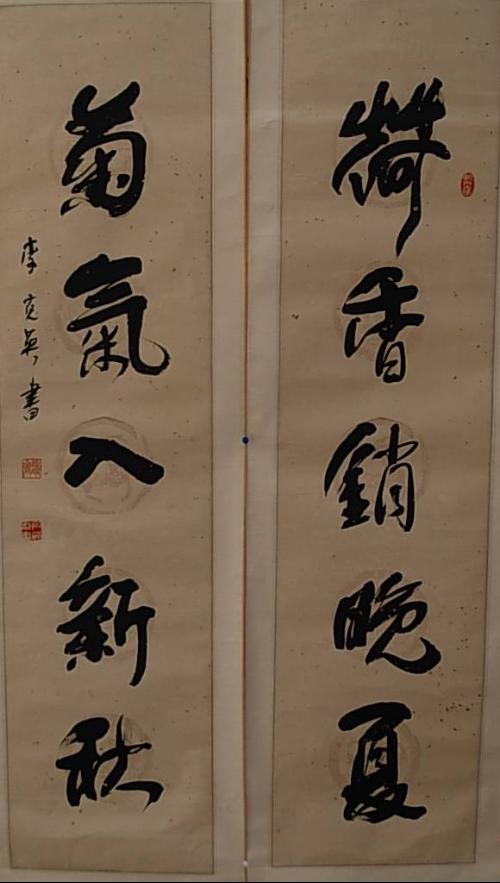 荷香銷晚夏
菊氣入新秋
李克英書